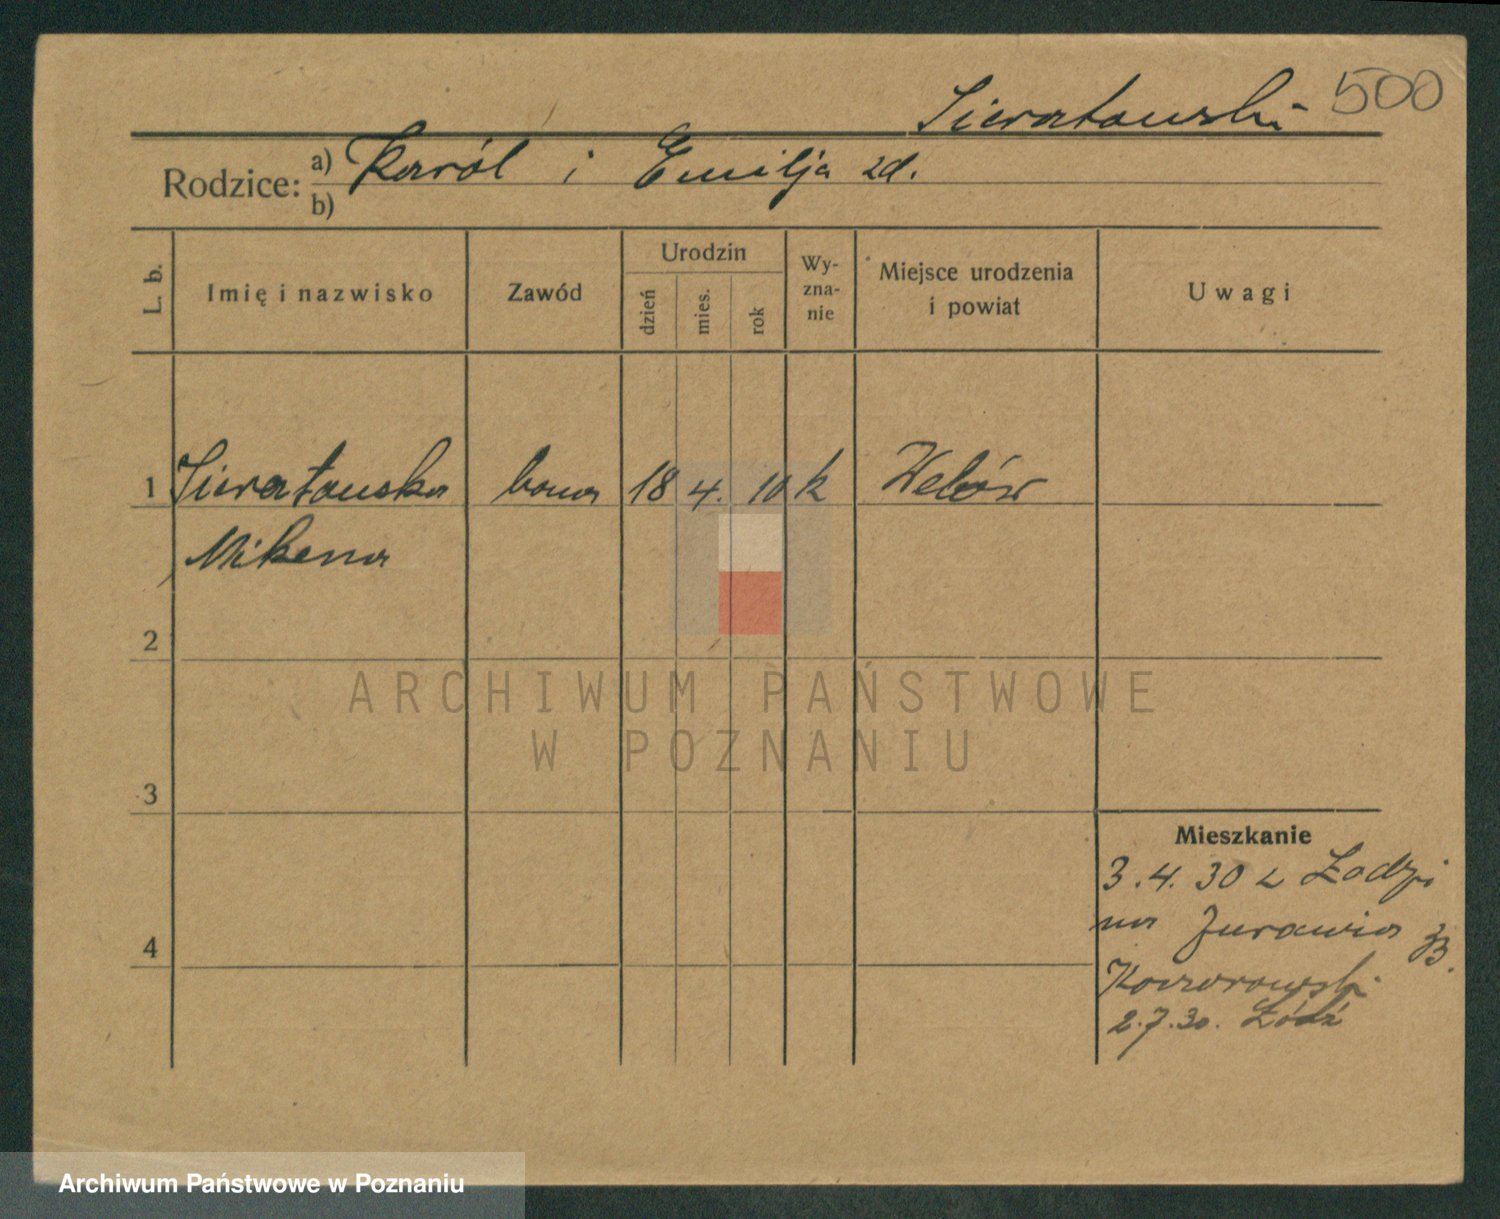 500
Sieratowski
Rodzice: a) Karól i Emilja zd.
b)
L. b.
Imię i nazwisko
Zawód
Urodzin
dzień
mies.
rok
Wy-
zna-
nie
Miejsce urodzenia
i powiat
Uwagi
1 Sieratowska bona 18 4. 10 k
Mikena
2
ARCHIWUM PAŃSTWOWE
W POZNANIU
3
4
Mieszkanie
3.4.30 z Łodzi
na Żurawia
2.7.30. Łódź
Archiwum Państwowe w Poznaniu